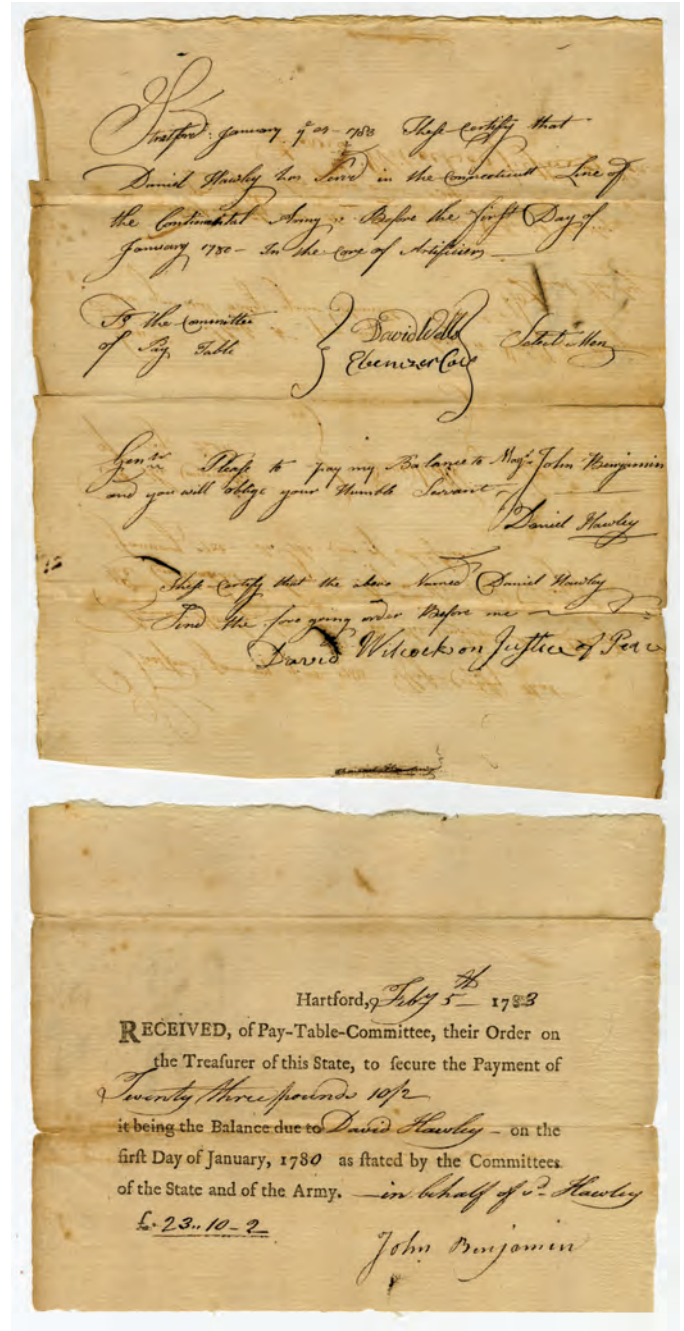 Stratford January 1783 These Certify that
Daniel Hawley has Servd in the Connecticutt Line of
the Continental Army Before the first Day of
January 1780 - In the Core of Artificiers
To the Committee
of Pay Table
David Wells
Ebenezer
Select Men
Gentn Please to pay my Balance to Majr John Benjamin
and you will oblige your Humble Servant
Daniel Hawley
These Certify that the above Named Daniel Hawley
the fore going order Before me
David Wilcockson Justice of Peace
Hartford, Feby 5th 1783
RECEIVED, of Pay-Table-Committee, their Order on
the Treaſurer of this State, to ſecure the Payment of
Twenty three pounds 10/2
it being the Balance due to David Hawley - on the
firſt Day of January, 1780 as ſtated by the Committees
of the State and of the Army. - in behalf of sd Hawley
£ 23..10-2
John Benjamin